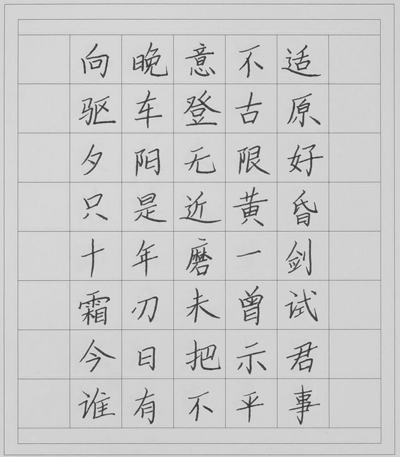 向晚意不适
驱车登古原
夕阳无限好
只是近黄昏
十年磨一剑
霜刃未曾试
今日把示君
谁有不平事